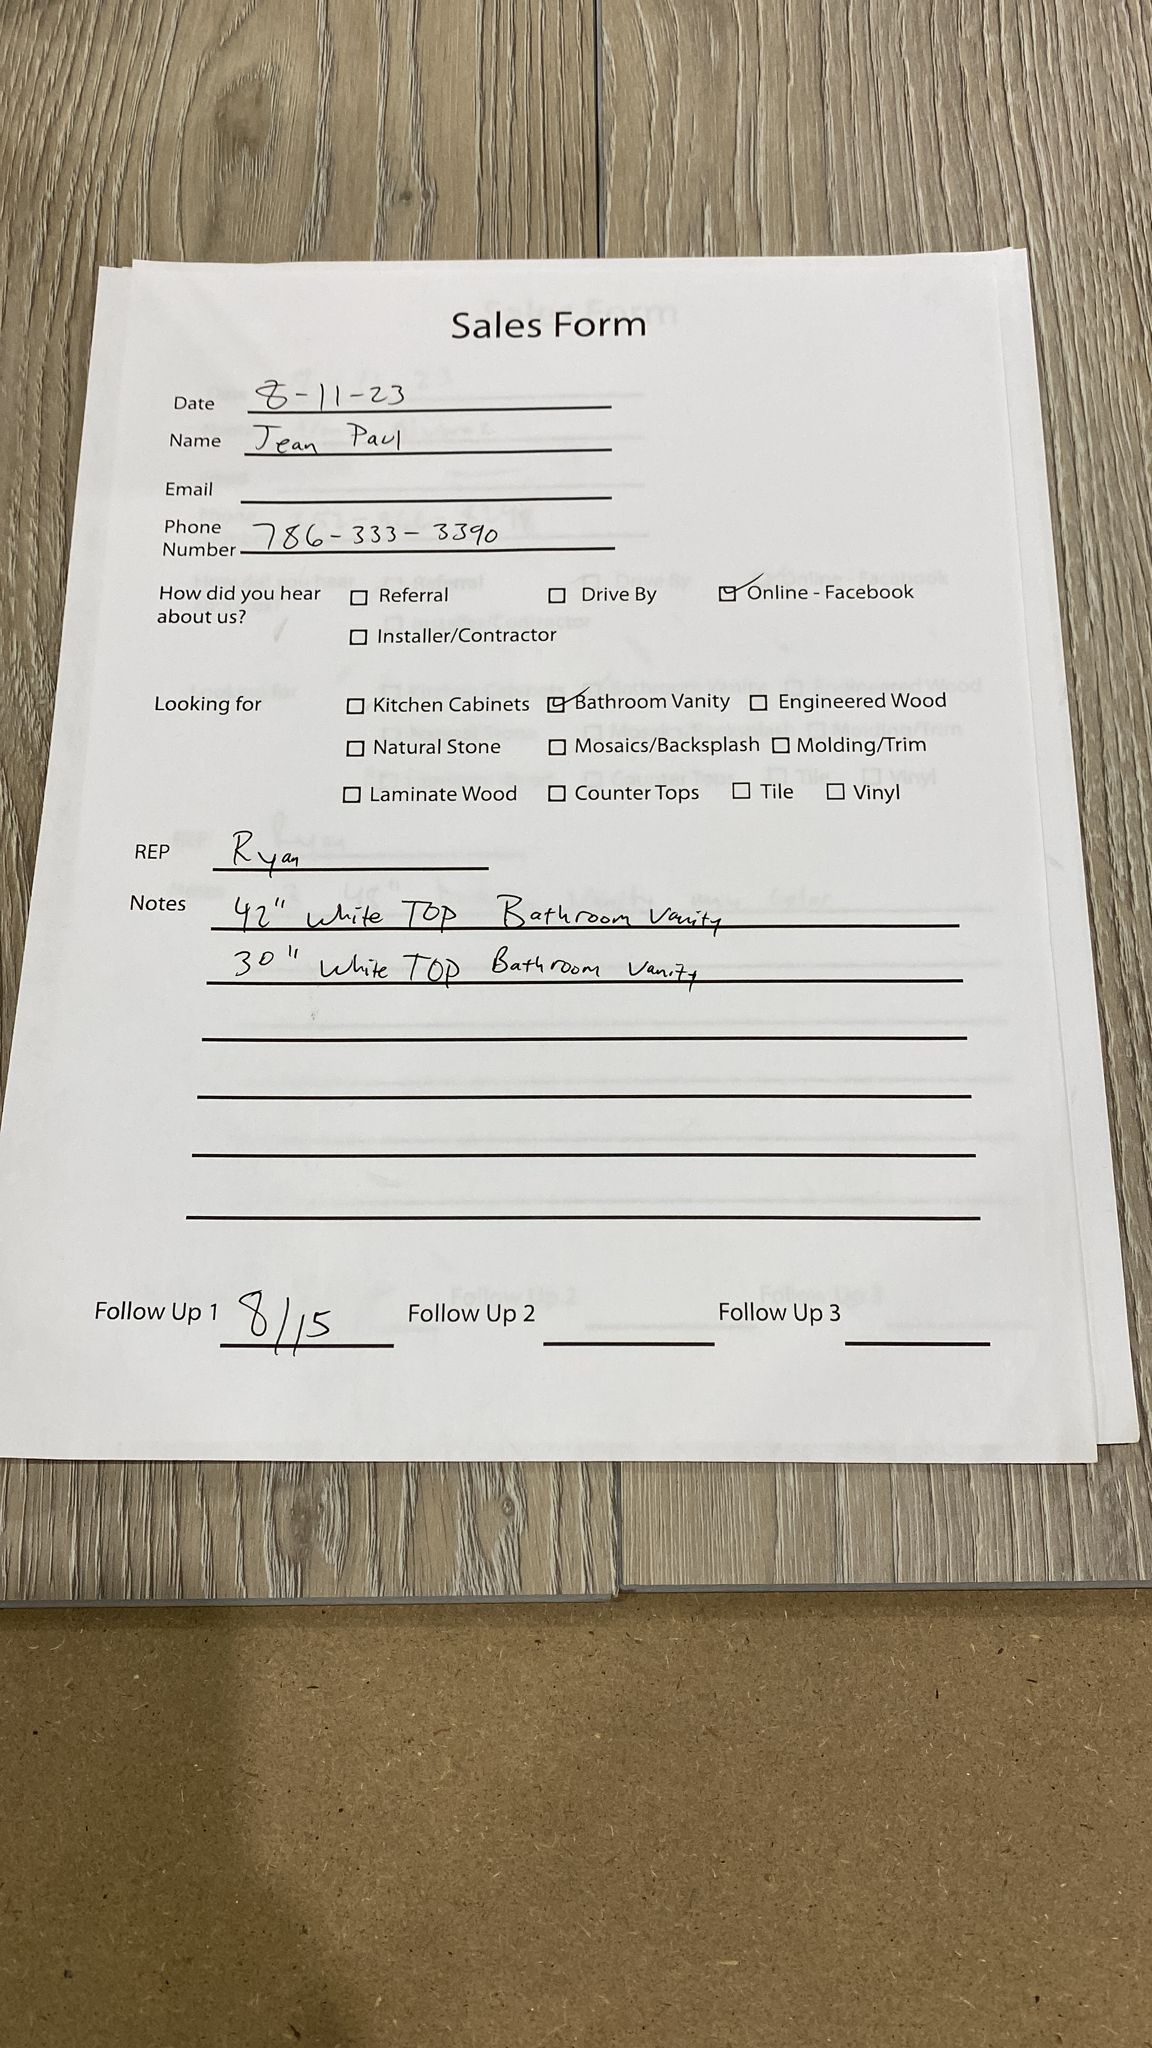 Sales Form
Date 8-11-23
Name Jean Paul
Email
Phone Number 786-333-3390
How did you hear about us? Referral Drive By Online - Facebook
Installer/Contractor
Looking for Kitchen Cabinets Bathroom Vanity Engineered Wood
Natural Stone Mosaics/Backsplash Molding/Trim
Laminate Wood Counter Tops Tile Vinyl
REP Ryan
Notes 42" White TOP Bathroom Vanity
30" White TOP Bathroom Vanity
Follow Up 1 8/15 Follow Up 2 Follow Up 3